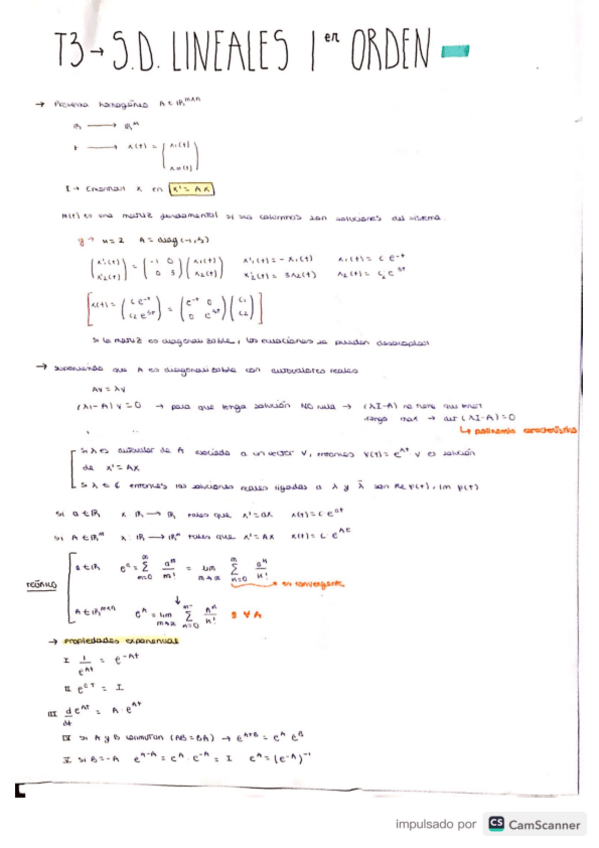 T3 → S.D. LINEALES 1er ORDEN
→ Problema homogéneo A ∈ ℝ^{n×n}
ℝ ⟶ ℝ^n
t ⟶ x(t) = (x1(t) ⋮ xn(t))
→ Encontrar x en x' = Ax
M(t) es una matriz fundamental si sus columnas son soluciones del sistema.
n=2 A = diag(-1,3)
(x1'(t) x2'(t)) = (-1 0 0 3)(x1(t) x2(t)) x1'(t) = -x1(t) x1(t) = c e^{-t}
x2'(t) = 3x2(t) x2(t) = c2 e^{3t}
[x(t) = (c e^{-t} c2 e^{3t}) = (e^{-t} 0 0 e^{3t})(c1 c2)]
Si la matriz es diagonalizable, las ecuaciones se pueden desacoplar
→ Suponiendo que A es diagonalizable con autovalores reales
Av = λv
(λI-A)v = 0 → para que tenga solución NO nula → (λI-A) no tiene que tener
rango max → det(λI-A) = 0
↳ polinomio característico
Si λ es autovalor de A asociado a un vector v, entonces v(t) = e^{λt} v es solución
de x' = Ax
Si λ ∈ ℂ entonces las soluciones reales ligadas a λ y λ̄ son Re v(t), Im v(t)
Si a ∈ ℝ x: ℝ → ℝ tales que x' = ax x(t) = c e^{at}
Si A ∈ ℝ^n x: ℝ → ℝ^n tales que x' = Ax x(t) = c e^{At}
TEÓRICO
a ∈ ℝ e^a = ∑_{n=0}^{∞} a^n/n! = lim_{m→∞} ∑_{n=0}^{∞} a^n/n!
→ es convergente
↓
A ∈ ℝ^{n×n} e^A = lim_{m→∞} ∑_{n=0}^{m} A^n/n! ∃ ∀ A
→ Propiedades exponencial
I 1/e^{At} = e^{-At}
II e^{0t} = I
III d/dt e^{At} = A·e^{At}
IV Si A y B conmutan (AB=BA) → e^{A+B} = e^A e^B
V Si B=-A e^{A-A} = e^A · e^{-A} = I e^A = (e^{-A})^{-1}
impulsado por CS CamScanner